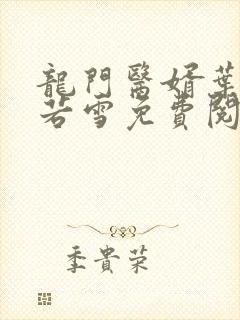 龍門醫婿葉
若雪免費閱
季貴荣